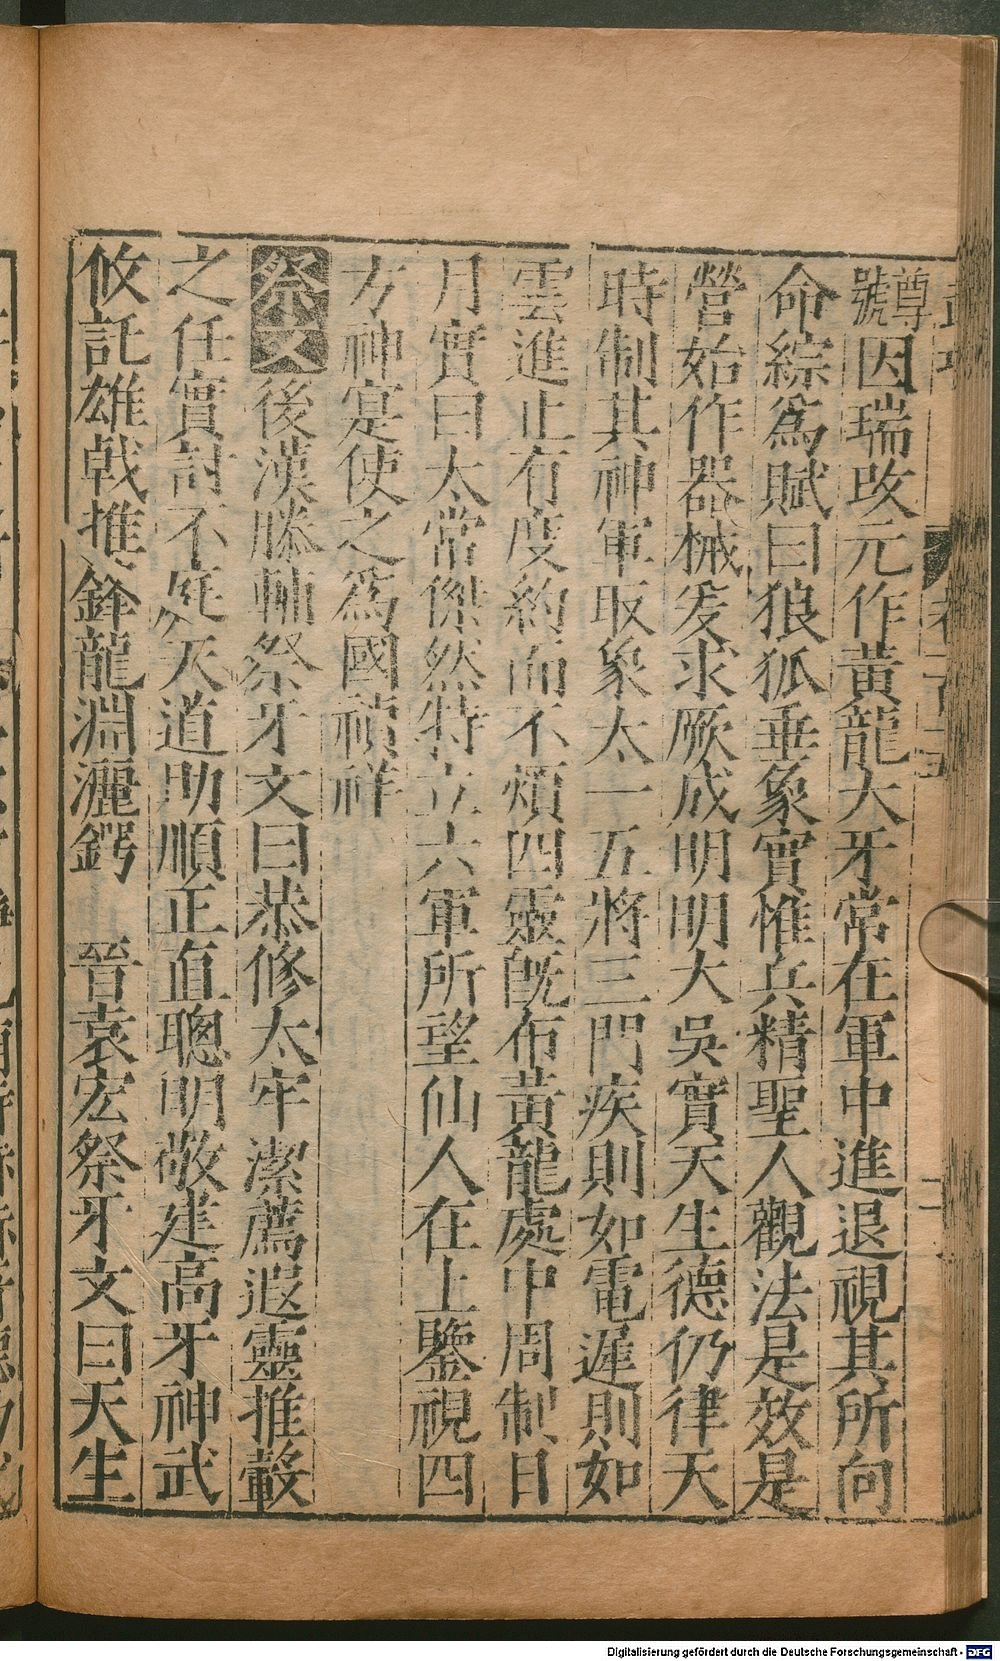 尊號因瑞改元作黃龍大牙常在軍中進退視其所向
命綜爲賦曰狼狐垂象實惟兵精聖人觀法是效是
營始作器械爰求厥成明明大吳實天生德仍律天
時制其神軍取象太一五將三門疾則如電遲則如
雲進止有度約而不煩四靈旣布黃龍處中周制日
月實曰太常傑然特立六軍所望仙人在上鑒視四
方神寔使之爲國禎祥
祭文後漢滕輔祭牙文曰恭修太牢潔薦遐靈推轂
之任實討不庭天道助順正直聰明敬建高牙神武
攸託雄戟推鋒龍淵灑鍔 晉袁宏祭牙文曰天生
Digitalisierung gefördert durch die Deutsche Forschungsgemeinschaft - DFG